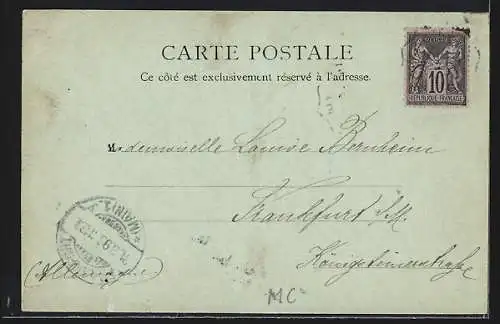 CARTE POSTALE
Ce côté est exclusivement réservé à l'adresse.
POSTES
10
REPUBLIQUE FRANÇAISE
Mademoiselle Louise Bernheim
Frankfurt a/M.
Königsteinerstraße
(Allemagne)
(MAIN) 1.
MC